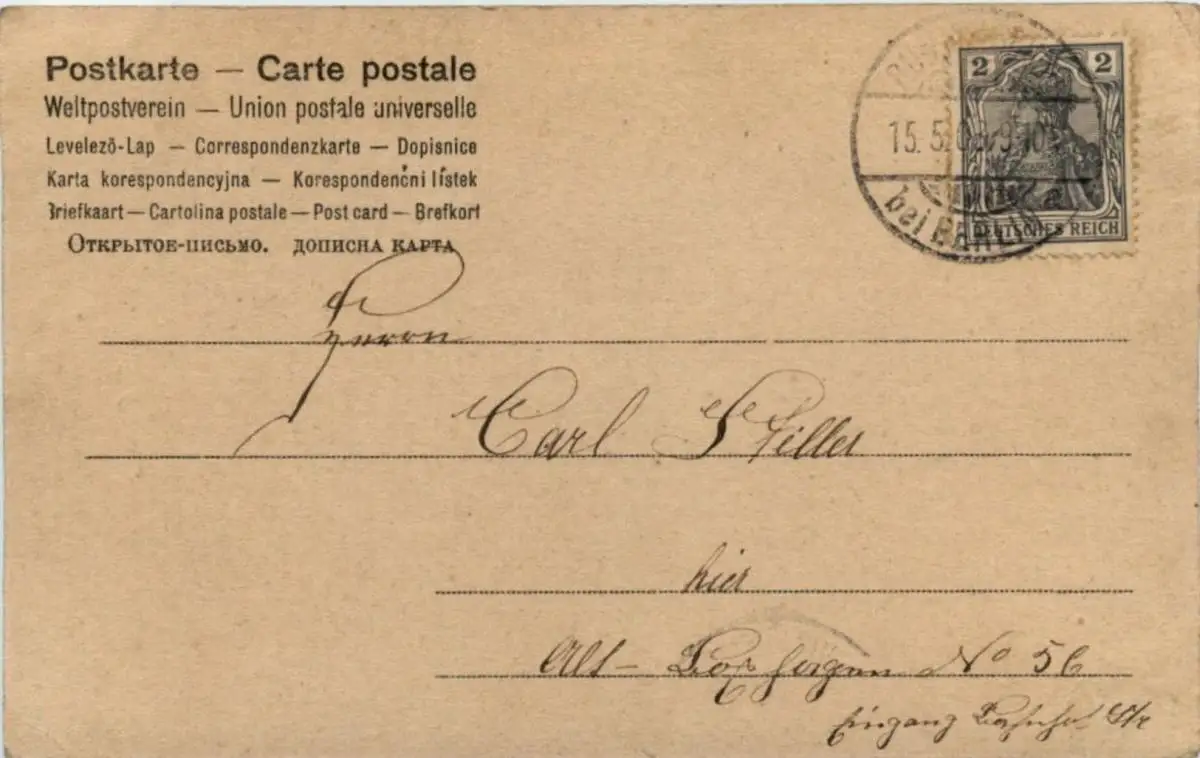 Postkarte — Carte postale
Weltpostverein — Union postale universelle
Levelezõ-Lap — Correspondenzkarte — Dopisnice
Karta korespondencyjna — Korespondenční lístek
Briefkaart — Cartolina postale — Post card — Brefkort
Открытое-письмо. дописна карта
2 2
15. 5. 9-10
bei BERLIN
DEUTSCHES REICH
Herrn
Carl Stiller
hier
Alt- No 56
Eingang Bahnhof Str